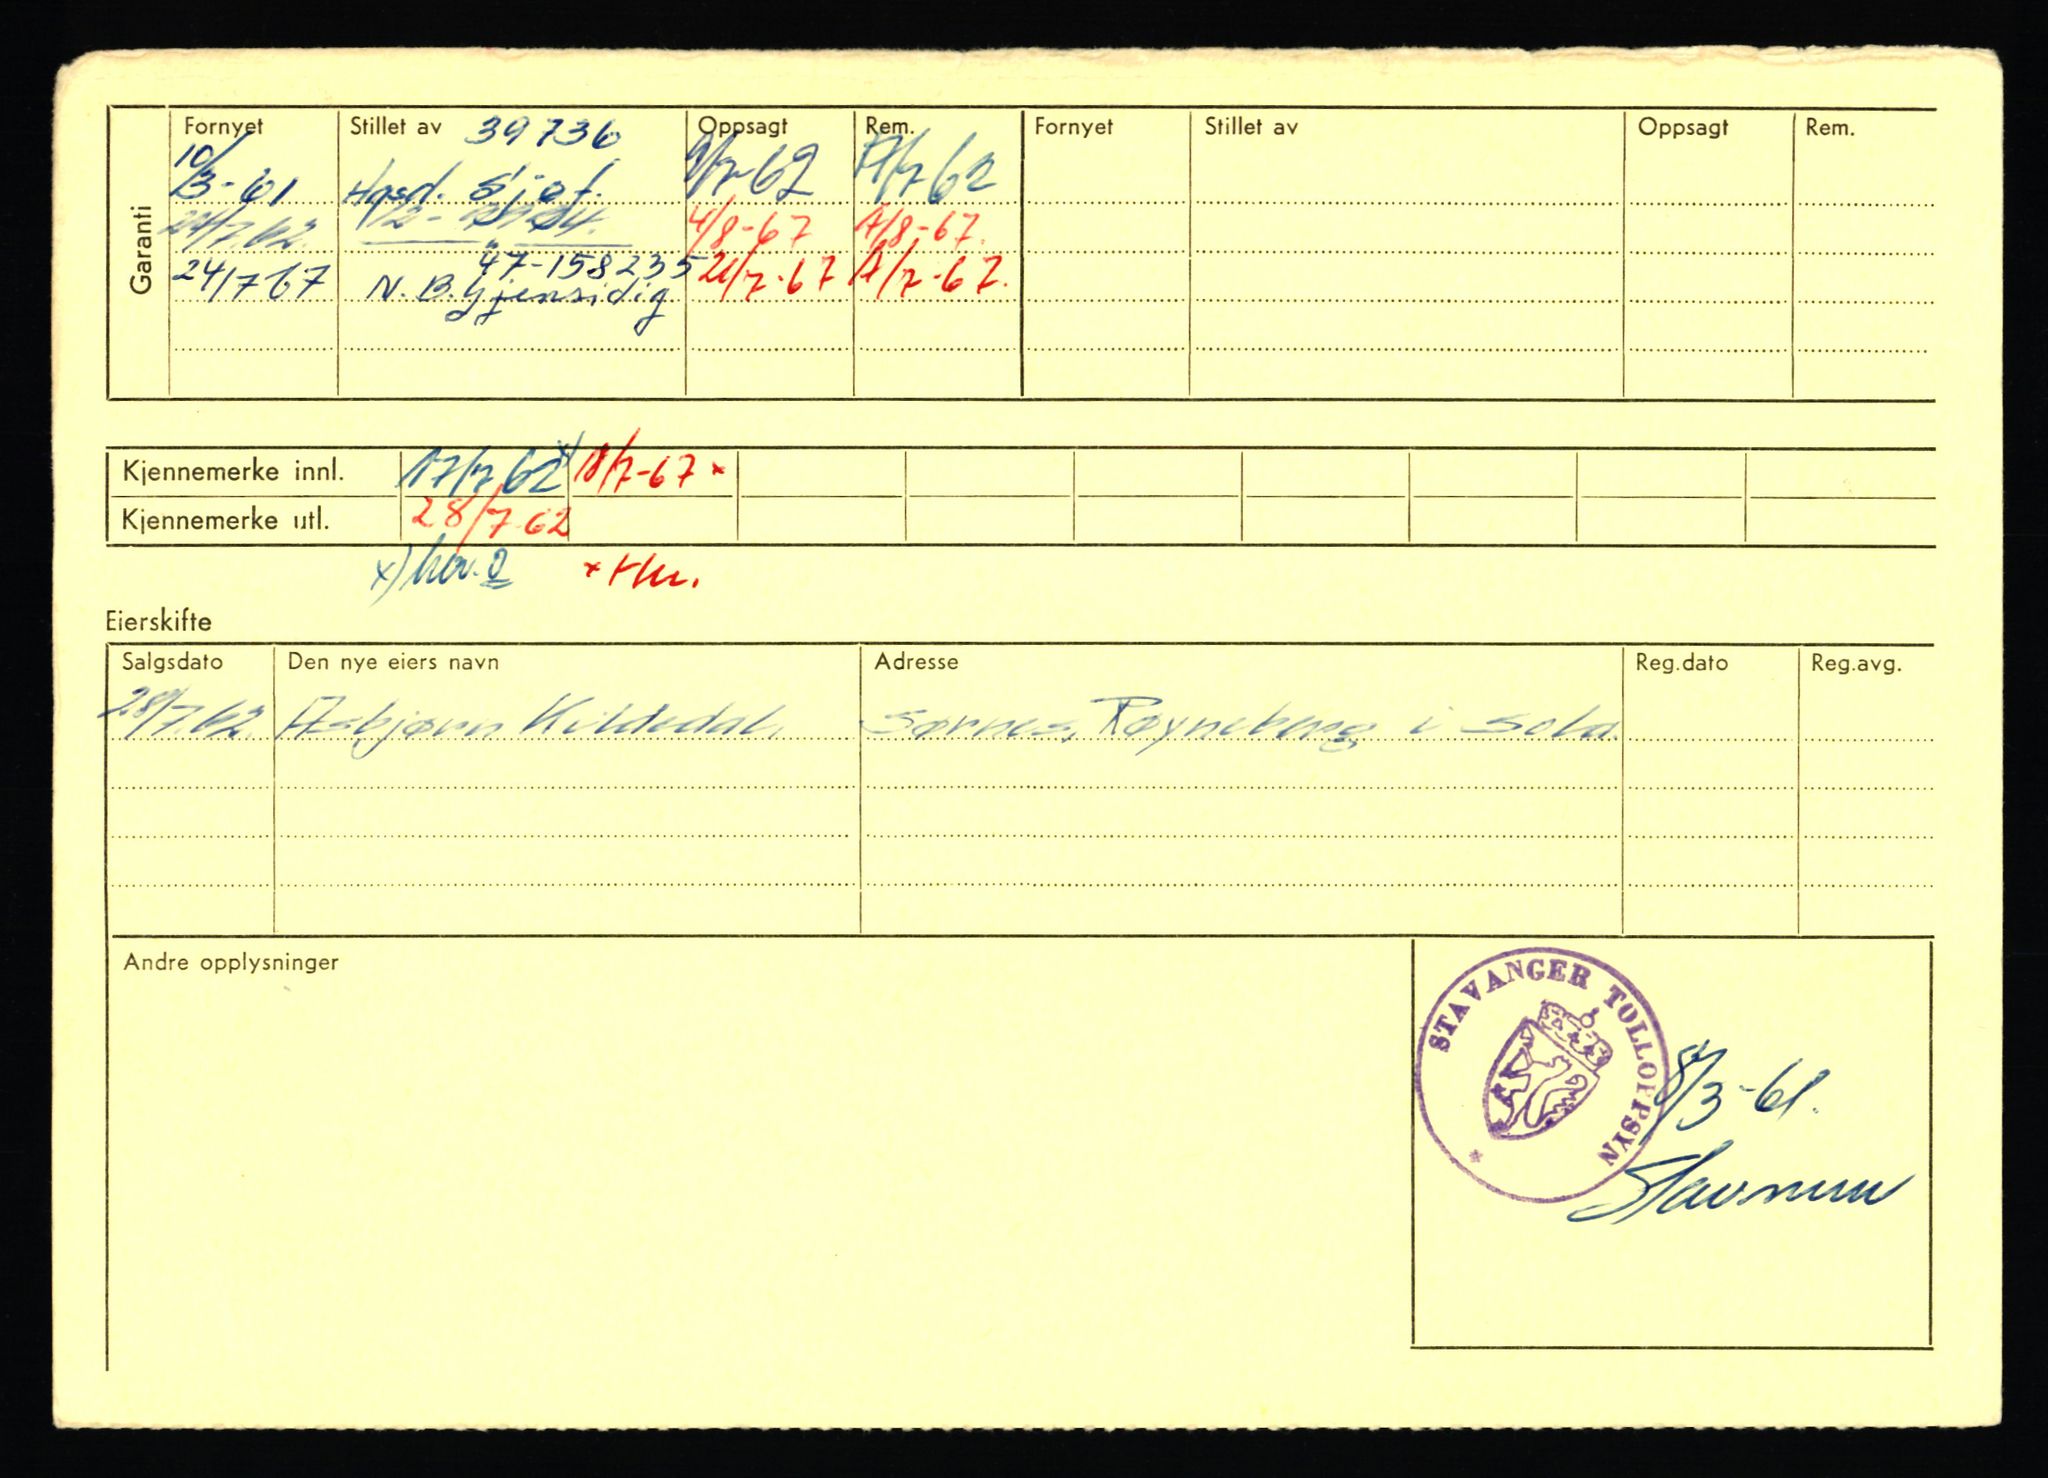 Garanti
Fornyet Stillet av 39736 Oppsagt Rem. Fornyet Stillet av Oppsagt Rem.
10/3-61 Hasd. Sjøf. 9/7-62 A/7 62
24/7.62. 4/8-67 A/8-67.
24/7 67 47-158235 21/7-67 A/7-67.
N.B. Gjensidig
Kjennemerke innl. 17/7 62 x) 18/7-67 x
Kjennemerke utl. 28/7 62
x) hov. 2 x
Eierskifte
Salgsdato Den nye eiers navn Adresse Reg.dato Reg.avg.
28/7.62. Asbjørn Kildedal, Sørnes, Røyneberg i Sola.
Andre opplysninger
STAVANGER TOLLOPPSYN
8/3-61.